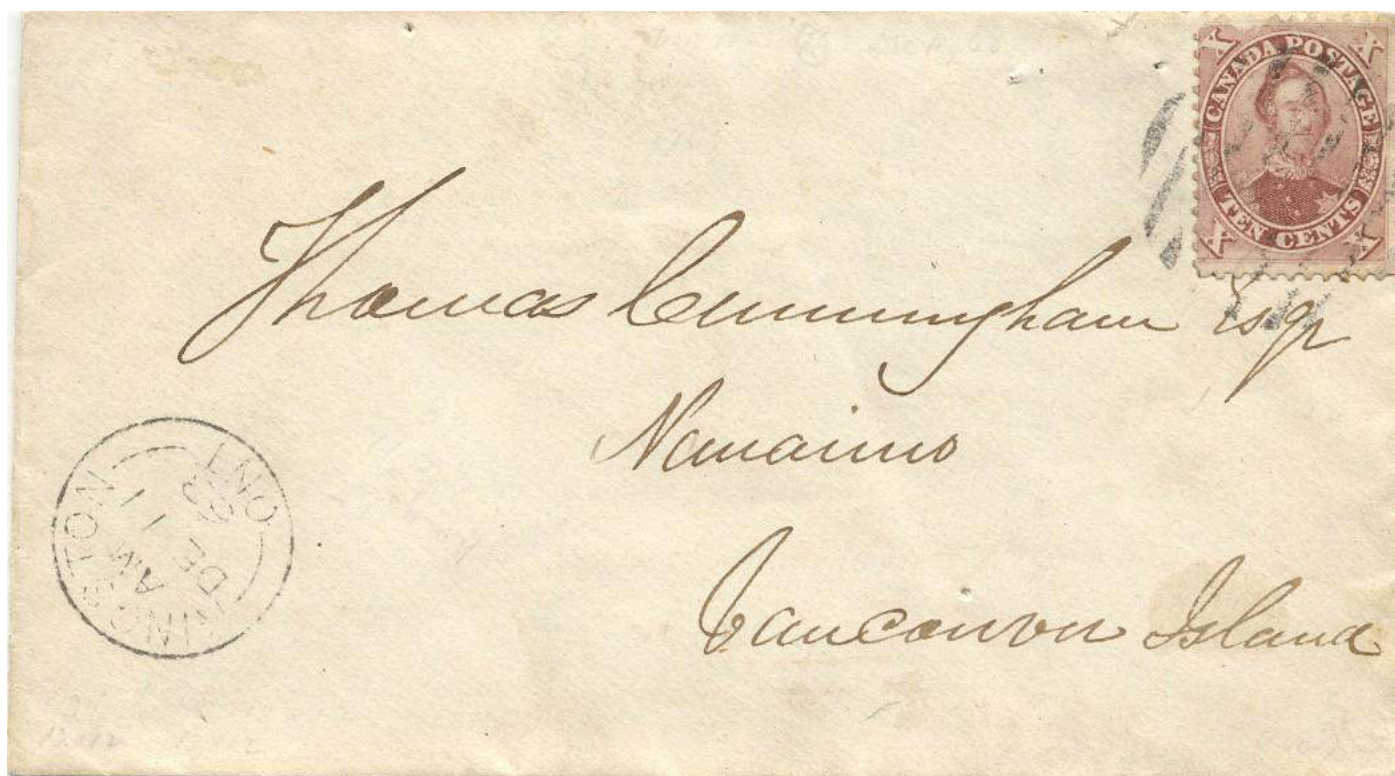 X CANADA POSTAGE X
X TEN CENTS X
Thomas Cunningham Esqr
Nanaimo
Vancouver Island
KINGSTON ONT
AM
DE 1